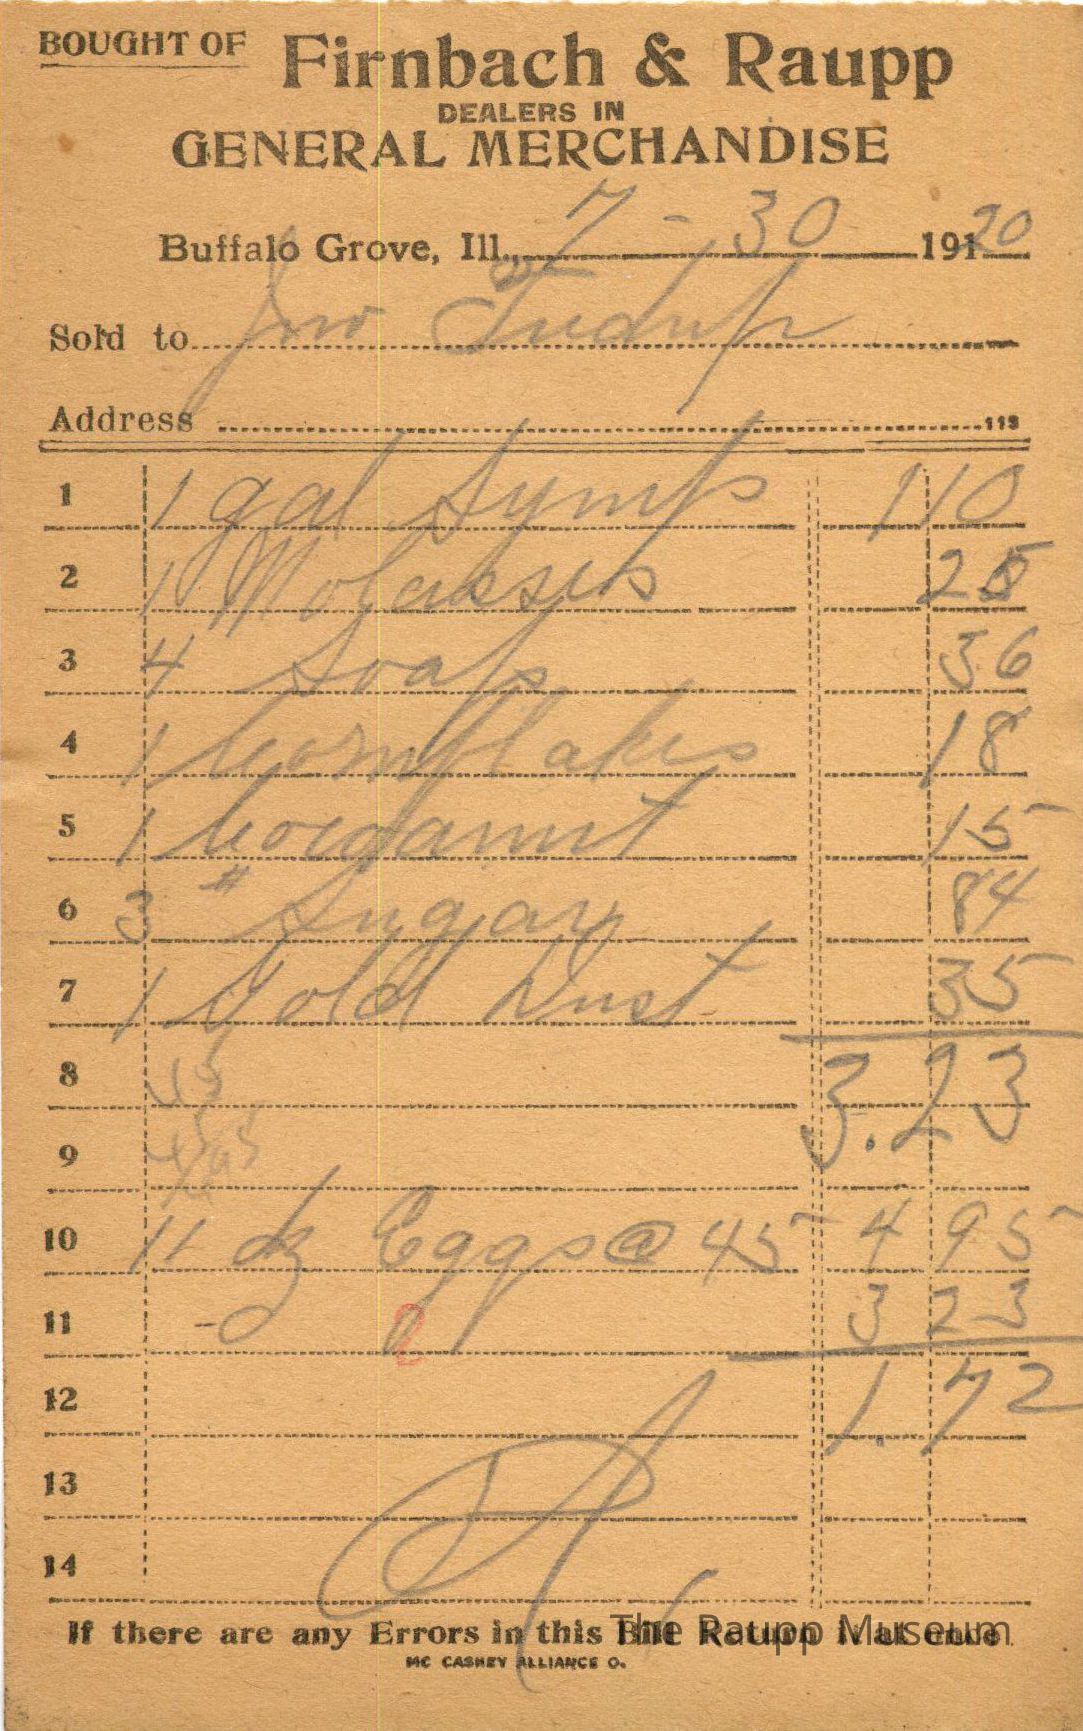 BOUGHT OF Firnbach & Raupp
DEALERS IN
GENERAL MERCHANDISE
Buffalo Grove, Ill., 7 - 30 19120
Sold to
Address 113
1 1 gal Syrup 1 10
2 1 Molasses 25
3 4 Soap 36
4 1 Cornflakes 18
5 1 15
6 3 # Sugar 84
7 1 Gold Dust 35
8 45 3.23
9
10 11 dz Eggs @ 45 4 95
11 3 23
12 1.72
13
14
If there are any Errors in this Bill Return it at once
The Raupp Museum
MC CASKEY ALLIANCE O.